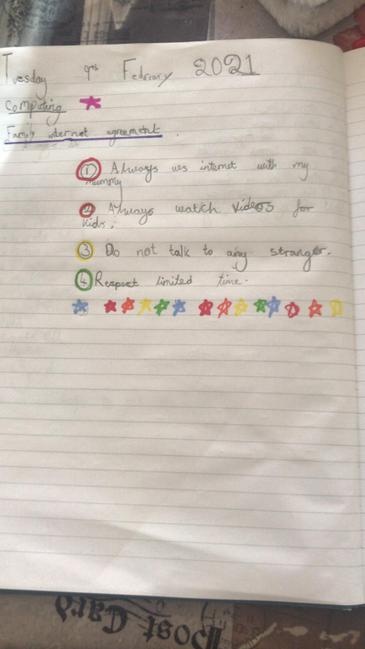 Tuesday 9ᵗʰ Febriary 2021
Computing
Family internet agreement.
1 Always ues internet with my
mummy
2 Always watch videos for
kids.
3 Do not talk to any stranger.
4 Respect limited time.
Post Card